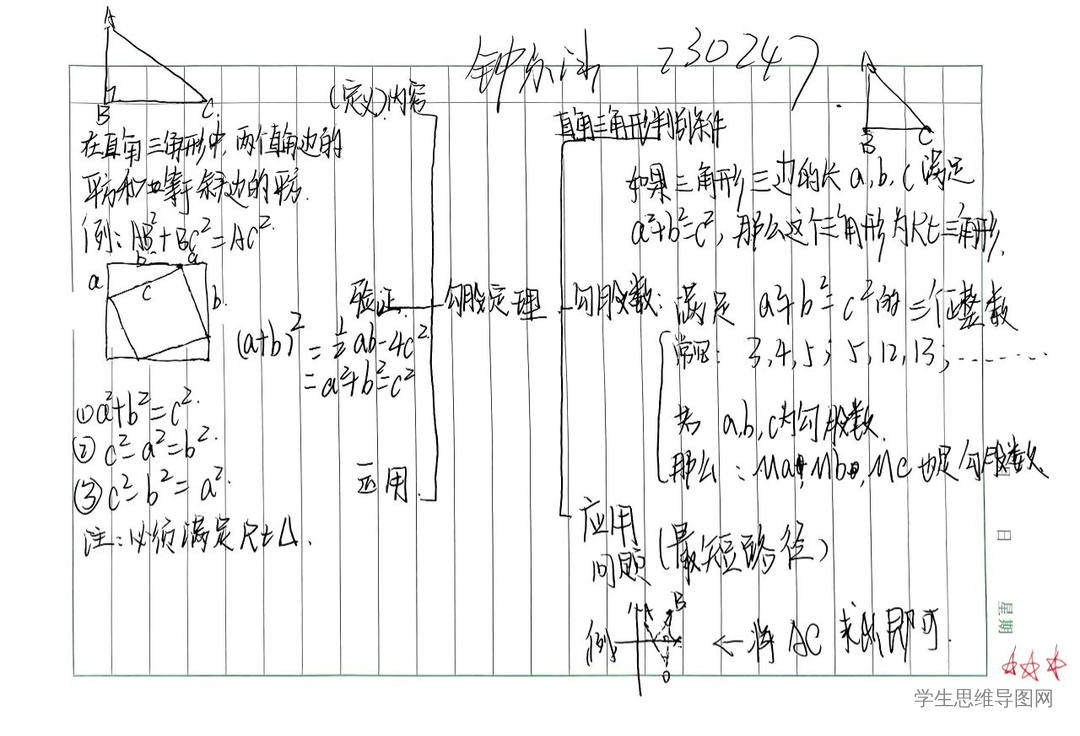 230247
A
B
C
在直角三角形中,两个直角边的
平方和也等于斜边的平方.
例:AB²+BC²=AC².
b a
a
c
b.
(a+b)²=½ab-4c²
=a²+b²=c²
①a²+b²=c².
② c²-a²=b².
③ c²-b²=a².
注:必须满足Rt△.
(定义)内容
验证
运用
勾股定理
直角三角形判别条件
A
B
C
如果三角形三边的长a,b,c满足
a²+b²=c²,那么这个三角形为Rt三角形.
勾股数:满足 a²+b²=c²的三个正整数
常见:3,4,5; 5,12,13;……
若 a,b,c为勾股数.
那么:na,nb,nc也是勾股数.
应用
问题(最短路径)
例:
A
B
←将AC求出即可.
日
星期
学生思维导图网